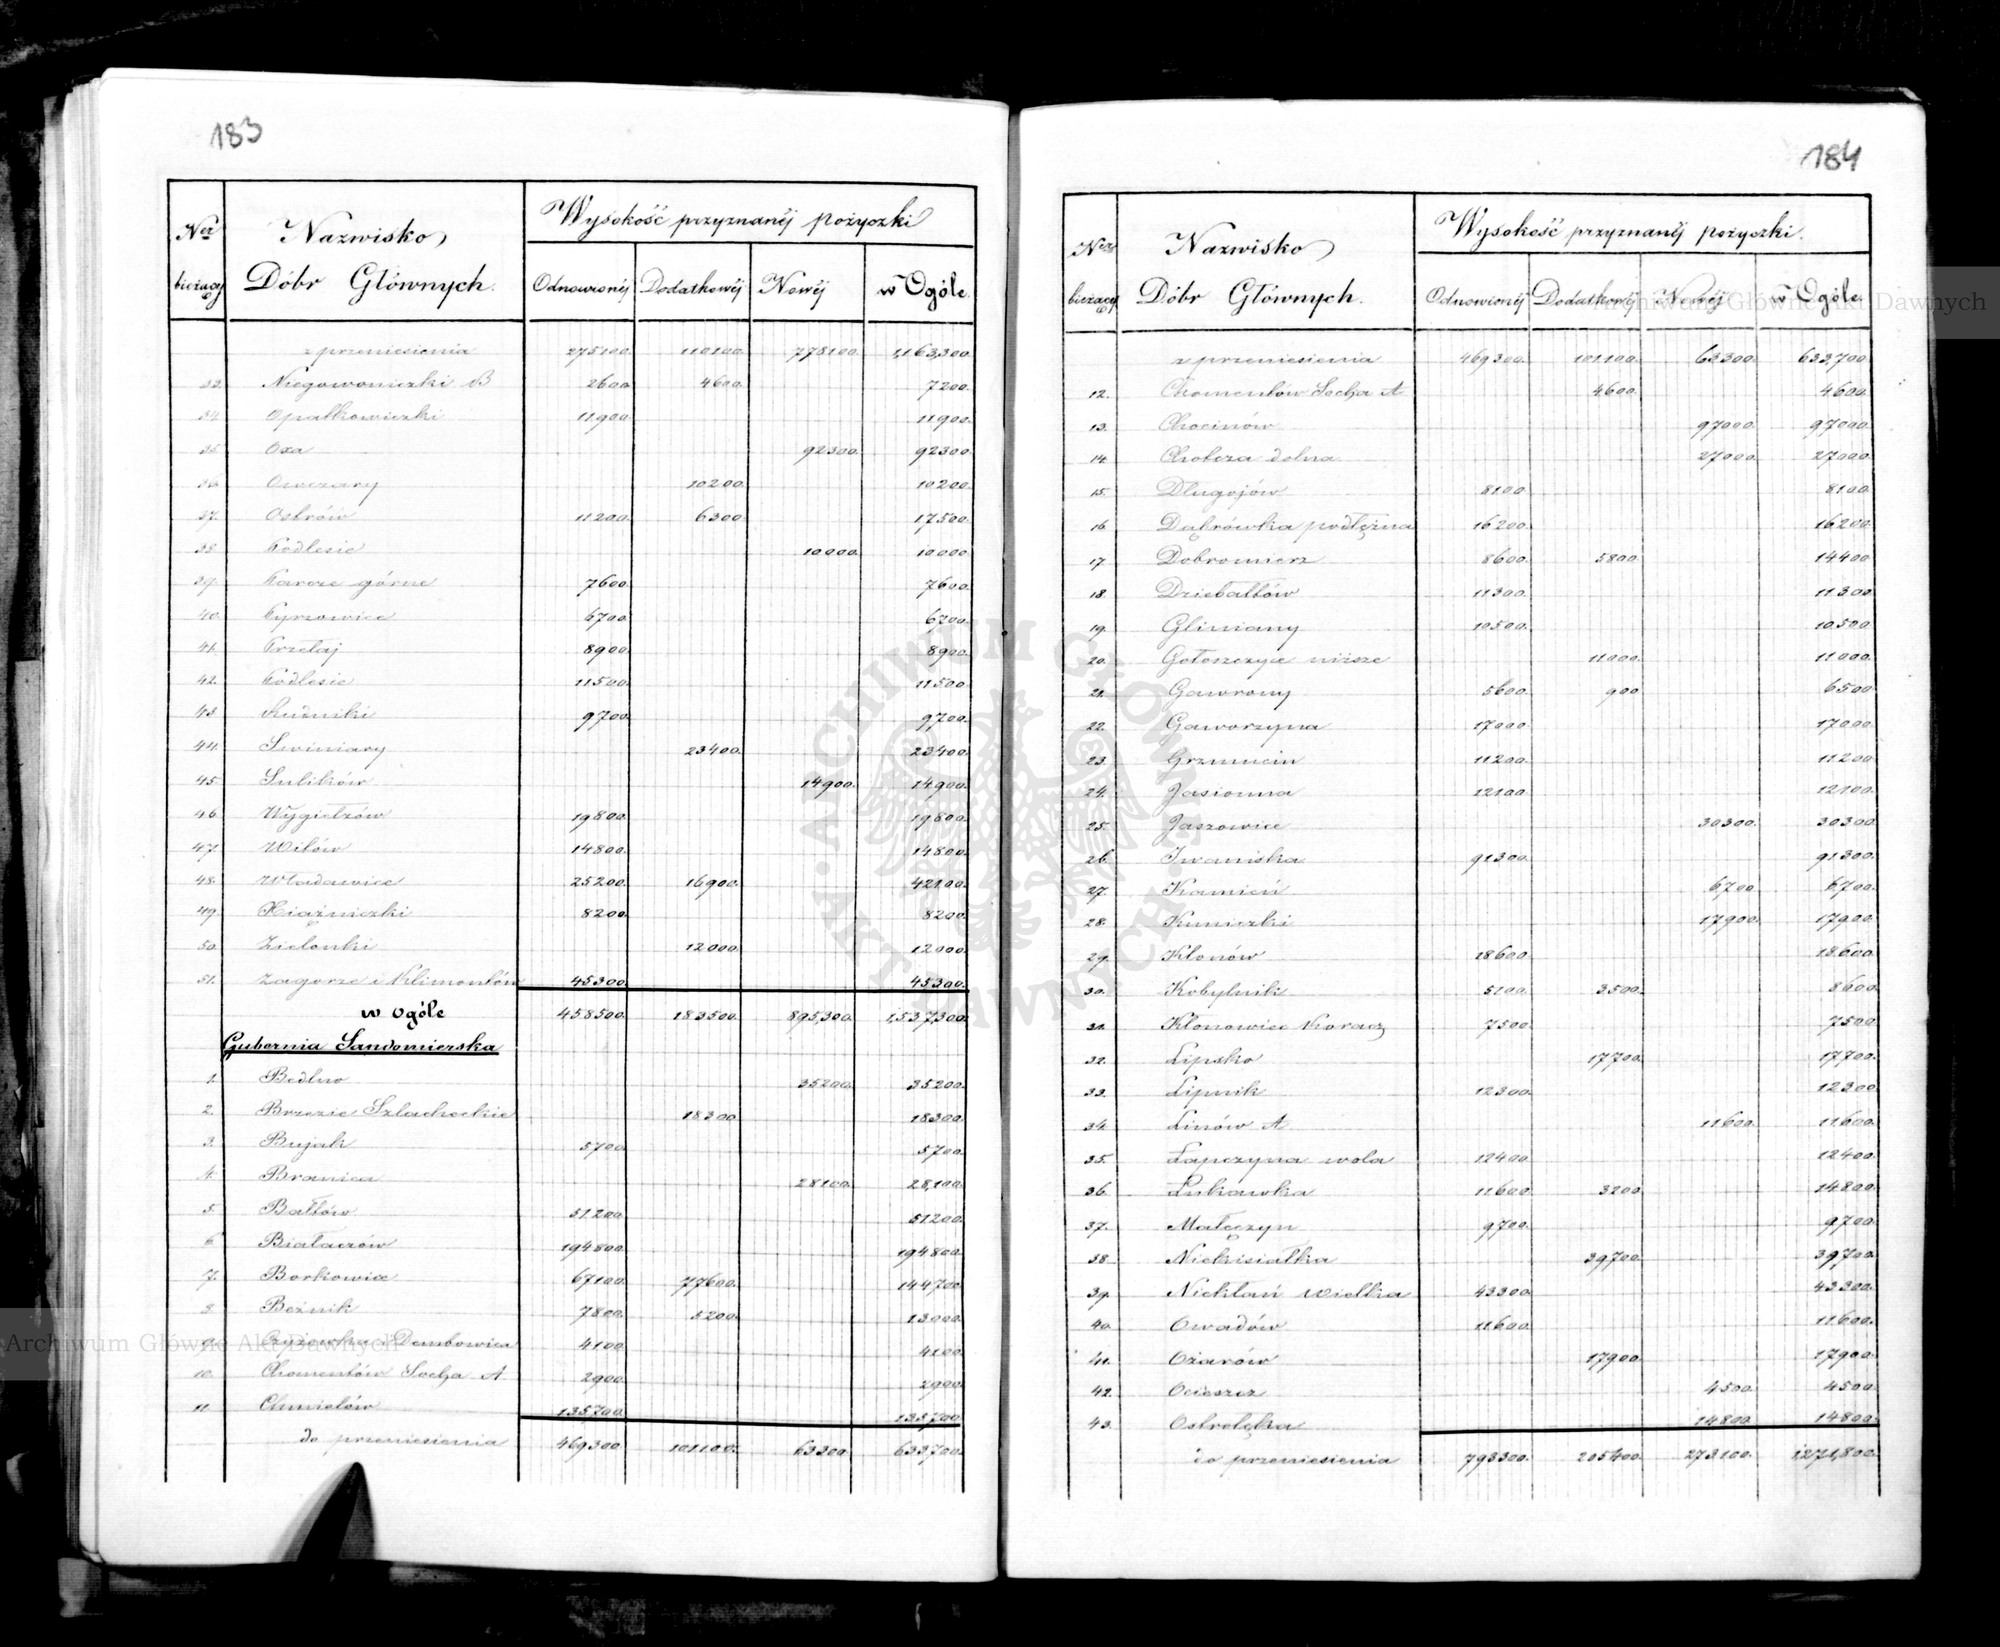 183
Ner bieżący Nazwisko Dóbr Głównych. Wysokość przyznanéj pożyczki
Odnowionéj Dodatkowéj Nowéj w Ogóle
z przeniesienia 275100. 110100. 778100. 1,163,300.
33. Niegowoniczki B 2600. 4600. 7200.
34. Opatkowiczki 11900. 11900.
35. Oxa 92300. 92300.
36. Owczary 10200. 10200.
37. Ostrów 11200. 6300. 17500.
38. Podlesie 10000. 10000
39. górne 7600. 7600.
40. Pyrzowice 6700. 6700.
41. Przełaj 8900. 8900.
42. Podlesie 11500. 11500.
43. Rudniki 9700. 9700.
44. Swiniary 23400. 23400.
45. Sulików 14900. 14900.
46. Wygiełzów 19800. 19800.
47. Witów 14800. 14800.
48. Władawice 25200. 16900. 42100.
49. Xiążniczki 8200. 8200.
50. Zielonki 12000. 12000.
51. Zagorze i Klimontów 45300. 45300.
w ogóle 458500. 183500. 895,300. 1,537,300.
Gubernia Sandomierska
1. Bedlno 35200. 35200.
2. Brzezie Szlacheckie 18300. 18300.
3. Bujak 5700. 5700.
4. Branica 28100. 28,100.
5. Bałtów 51200. 51200.
6. Białaczów 194800. 194800.
7. Borkowice 67100. 77600. 144700
8. Beźnik 7800. 5200. 13000.
9. Czyżówka Dembowica 4100. 4100.
10. Chomentów Socha A 2900. 2900.
11. Chmielów 135,700. 135,700.
do przeniesienia 469300. 101100. 63300. 633700.
184
Ner bieżący Nazwisko Dóbr Głównych. Wysokość przyznanéj pożyczki.
Odnowionéj Dodatkowéj Nowéj w Ogóle
z przeniesienia 469300. 101100. 63300. 633,700.
12. Chomentów Socha A 4600. 4600.
13. Chocimów 97000. 97000.
14. Chotcza dolna 27000. 27000.
15. Długojów 8100. 8100.
16. Dąbrówka podłężna 16200. 16200.
17. Dobromierz 8600. 5800. 14400
18. Dziebałtów 11300. 11300
19. Gliniany 10500. 10500
20. Gołoszyce niższe 11000. 11000.
21. Gawrony 5600. 900 6500
22. Gaworzyna 17000. 17000.
23. Grzmucin 11200. 11200
24. Jasionna 12100 12100
25. Jaszowice 30300. 30300.
26. Iwaniska 91300. 91300.
27. Kamień 6700 6700.
28. Kuniczki 17900. 17900.
29. Klonów 18600. 18600.
30. Kobylnik 5100. 3500. 8600
31. Klonowiec Koracz 7500. 7500.
32. Lipsko 17700. 17700.
33. Lipnik 12300. 12300
34. Linów A 11600. 11600.
35. Łapczyna wola 12400 12400.
36. Łukawka 11600. 3200. 14800.
37. Małęczyn 9700. 9700.
38. Niekisiałka 39700. 39700.
39. Niekłań wielka 43300. 43300.
40. Owadów 11600. 11600.
41. Ożarów 17900. 17900.
42. Ocieszcz 4500. 4500.
43. Ostrołęka 14800. 14800.
do przeniesienia 793300. 205400. 273100. 1,271,800.
Archiwum Główne Akt Dawnych
Archiwum Główne Akt Dawnych
ARCHIWUM GŁÓWNE AKT DAWNYCH